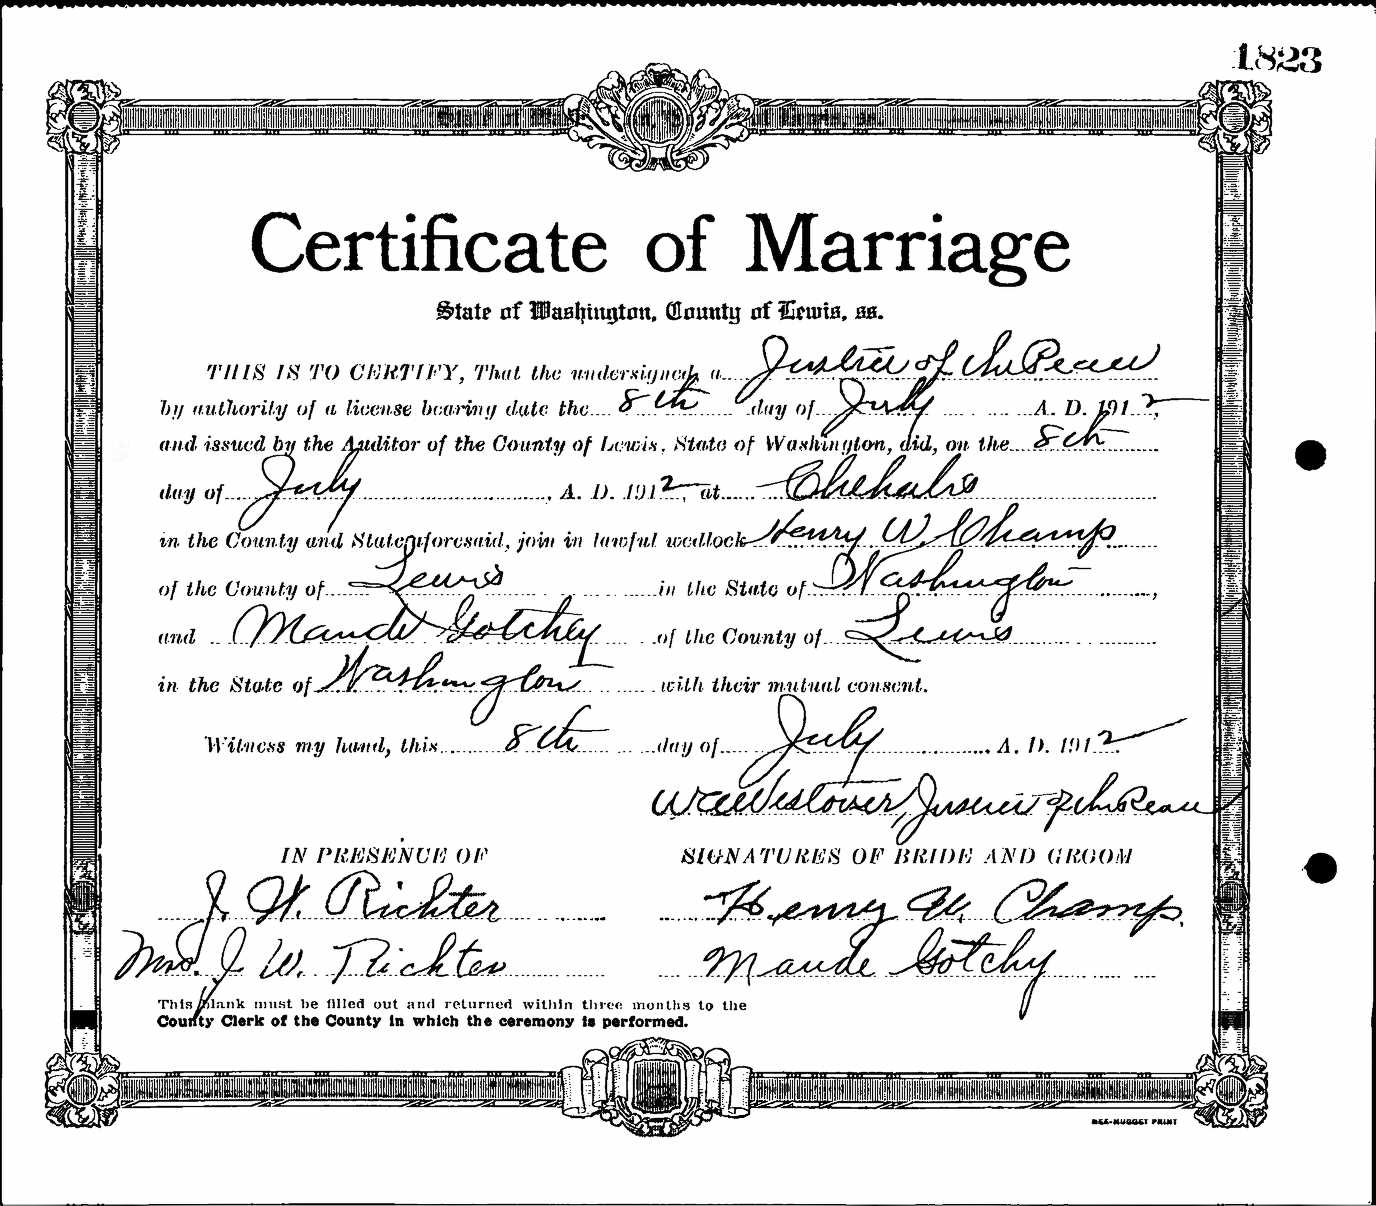 1823
Certificate of Marriage
State of Washington, County of Lewis, ss.
THIS IS TO CERTIFY, That the undersigned, a Justice of the Peace
by authority of a license bearing date the 8th day of July A. D. 1912,
and issued by the Auditor of the County of Lewis, State of Washington, did, on the 8th
day of July, A. D. 1912, at Chehalis
in the County and State aforesaid, join in lawful wedlock Henry W. Champ
of the County of Lewis in the State of Washington,
and Maude Gotchey of the County of Lewis
in the State of Washington with their mutual consent.
Witness my hand, this 8th day of July, A. D. 1912.
Westover, Justice of the Peace
IN PRESENCE OF SIGNATURES OF BRIDE AND GROOM
J. W. Richter Henry W. Champ.
Mrs. J. W. Richter Maude Gotchy
This blank must be filled out and returned within three months to the
County Clerk of the County in which the ceremony is performed.
BEE-NUGGET PRINT